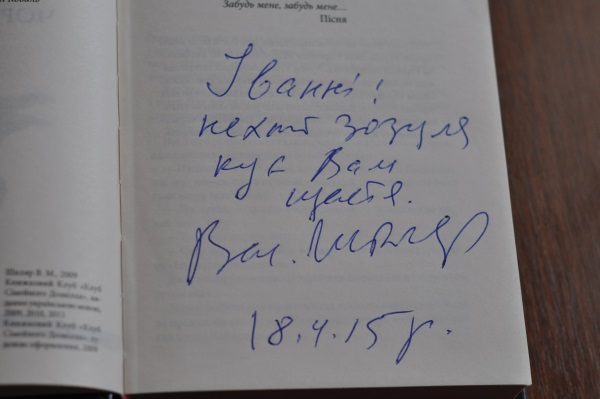 Забудь мене, забудь мене...
Пісня
Іванні!
нехай зозуля
кує Вам
щастя.
Вол. Шкляр
18.4.15 р.
Шкляр В. М., 2009
Книжковий Клуб «Клуб
Сімейного Дозвілля», ви-
дання українською мовою,
2009, 2010, 2011
Книжковий Клуб «Клуб
Сімейного Дозвілля», ху-
дожнє оформлення, 2009